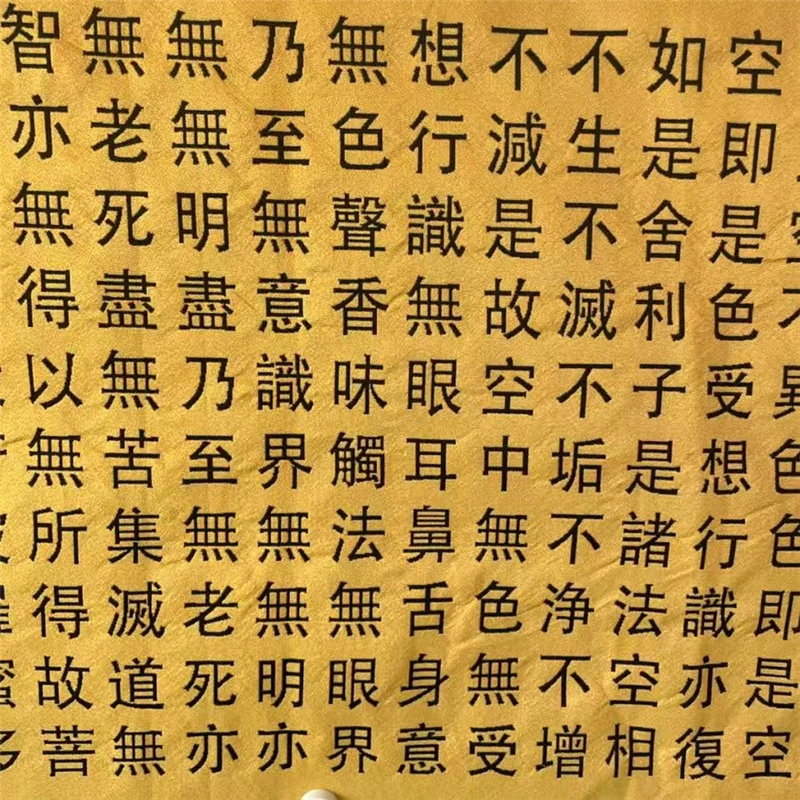 空不異色色即是空
空即是色受想行識亦復
如是舍利子是諸法空相
不生不滅不垢不浄不增
不減是故空中無色無受
想行識無眼耳鼻舌身意
無色聲香味觸法無眼界
乃至無意識界無無明亦
無無明盡乃至無老死亦
無老死盡無苦集滅道無
智亦無得以無所得故菩